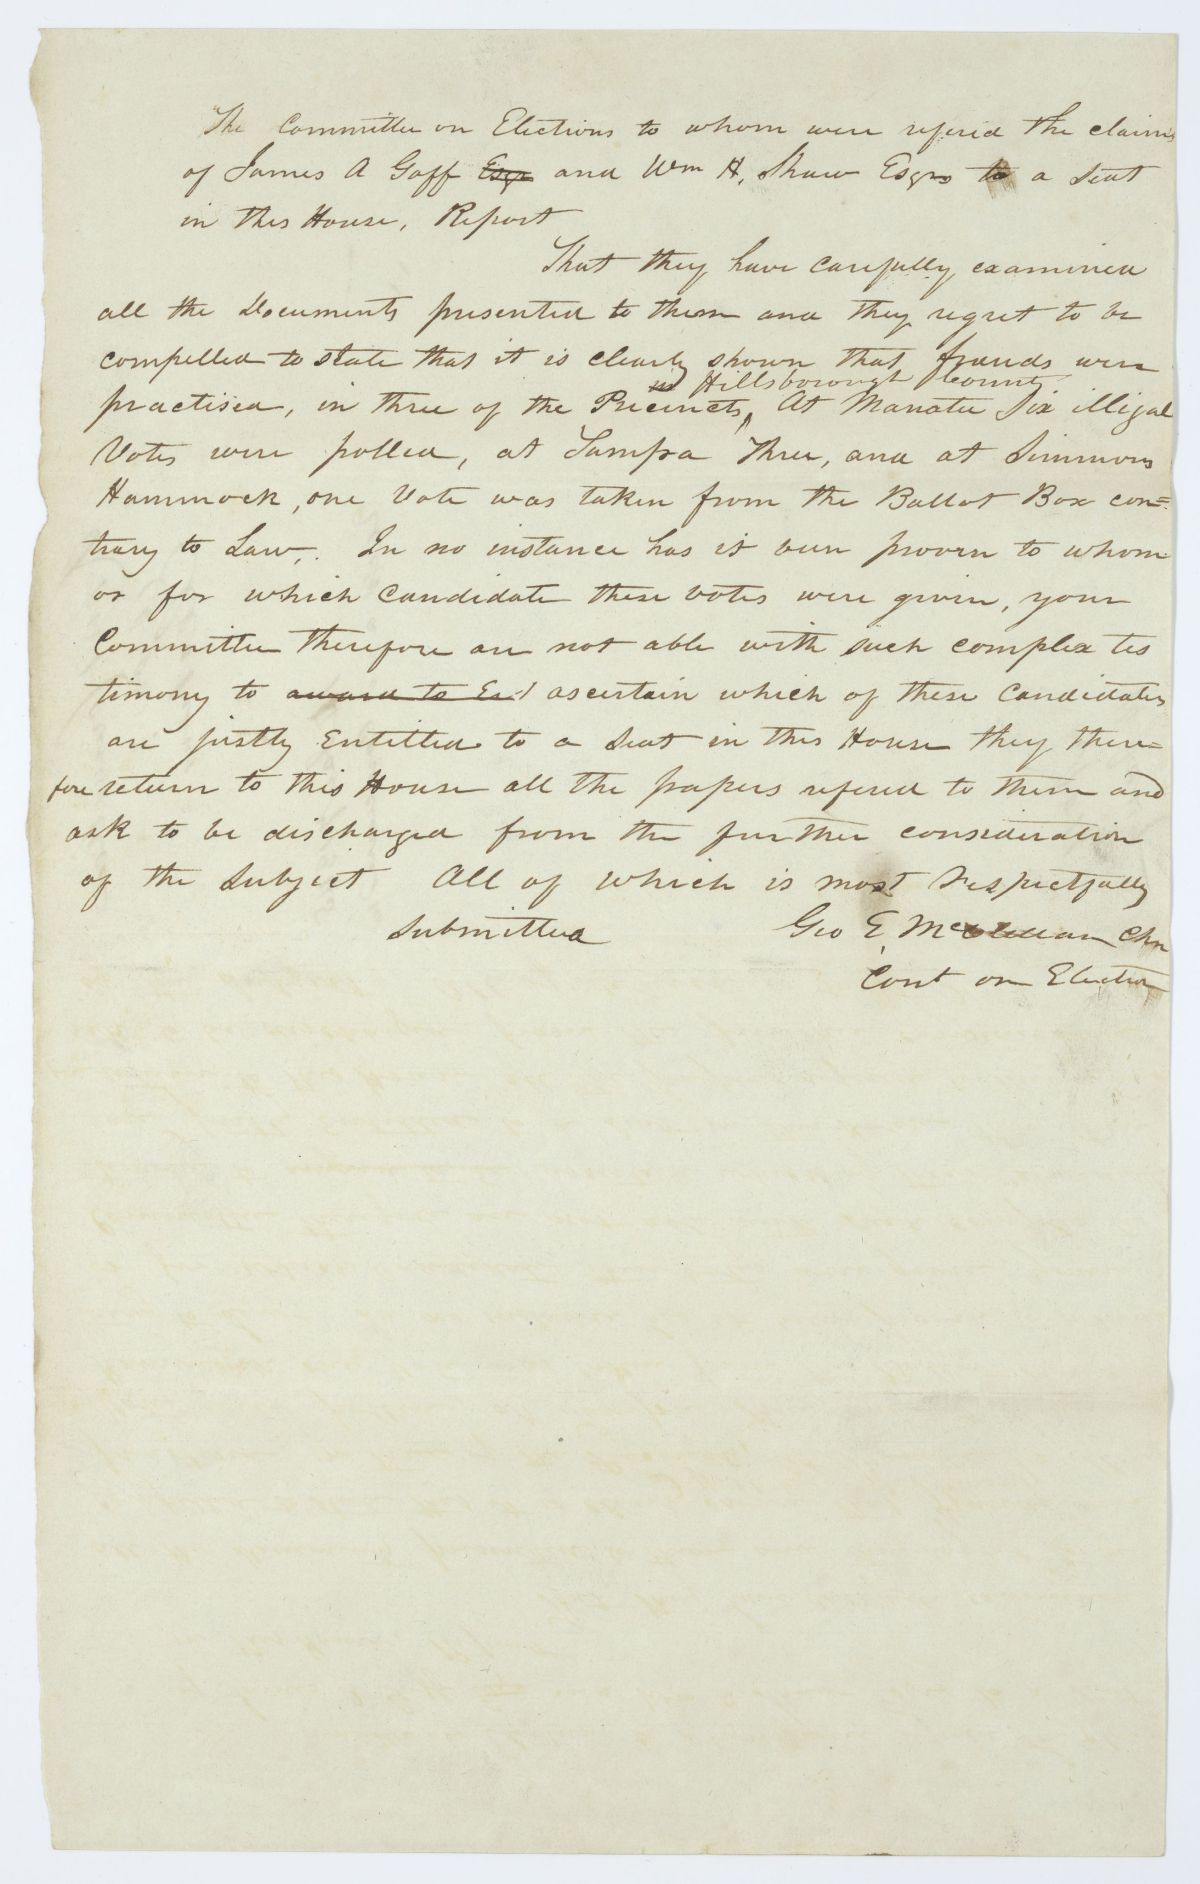 The Committee on Elections to whom were refered the claims
of James A Goff Esqr and Wm H, Shaw Esqrs to a seat
in this House, Report
That they have carefully examined
all the Documents presented to them and they regret to be
compelled to state that it is clearly shown that frauds were
in Hillsborough County
practised, in three of the Precincts, At Manatee Six illegal
Votes were polled, at Tampa Three, and at Simmons
Hammock, one Vote was taken from the Ballot Box con=
trary to Law,. In no instance has it been proven to whom
or for which Candidate these votes were given, your
Committee therefore are not able with such complex tes
timony to award to ascertain which of these Candidates
are justly Entitled to a Seat in this House they there=
fore return to this House all the papers refered to them and
ask to be discharged from the further consideration
of the Subject All of which is most respectfully
Submitted Geo E, McClellan Chn
Comt on Election